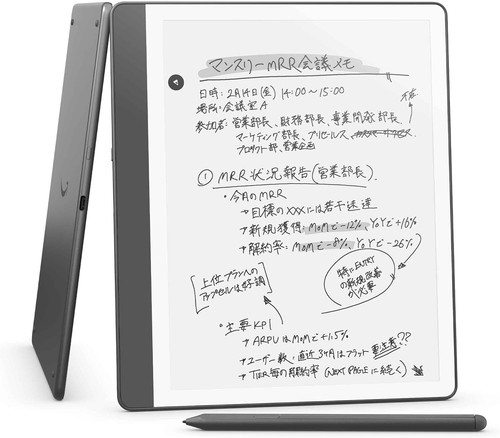 マンスリーMRR会議メモ
日時: 2月14日(金) 14:00〜15:00
場所: 会議室A
参加者: 営業部長、財務部長、事業開発部長
欠席
マーケティング部長、プリセールス、カスタマーサービス
プロダクト部、営業企画
① MRR状況報告(営業部長)
・今月のMRR
→ 目標のXXXには若干未達
→ 新規獲得: MoMで-12%、YoYで+16%
→ 解約率: MoMで-8%、YoYで-26%
[上位プランへの
アップセルは好調]
特にENTRY
の新規改善
が必要
・主要KPI
→ ARPUはMoMで+1.5%
→ ユーザー数、直近3ヶ月はフラット 要注意??
→ TIER毎の解約率 (NEXT PAGEに続く)